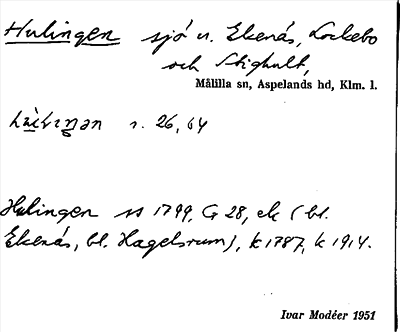 Hulingen sjö v. Ekenäs, Lockebo
och Stighult,
Målilla sn, Aspelands hd, Klm. l.
s. 26, 64
Hulingen ss 1799, G 28, ek (bl.
Ekenäs, bl. Hagelsrum), k 1787, k 1914.
Ivar Modéer 1951